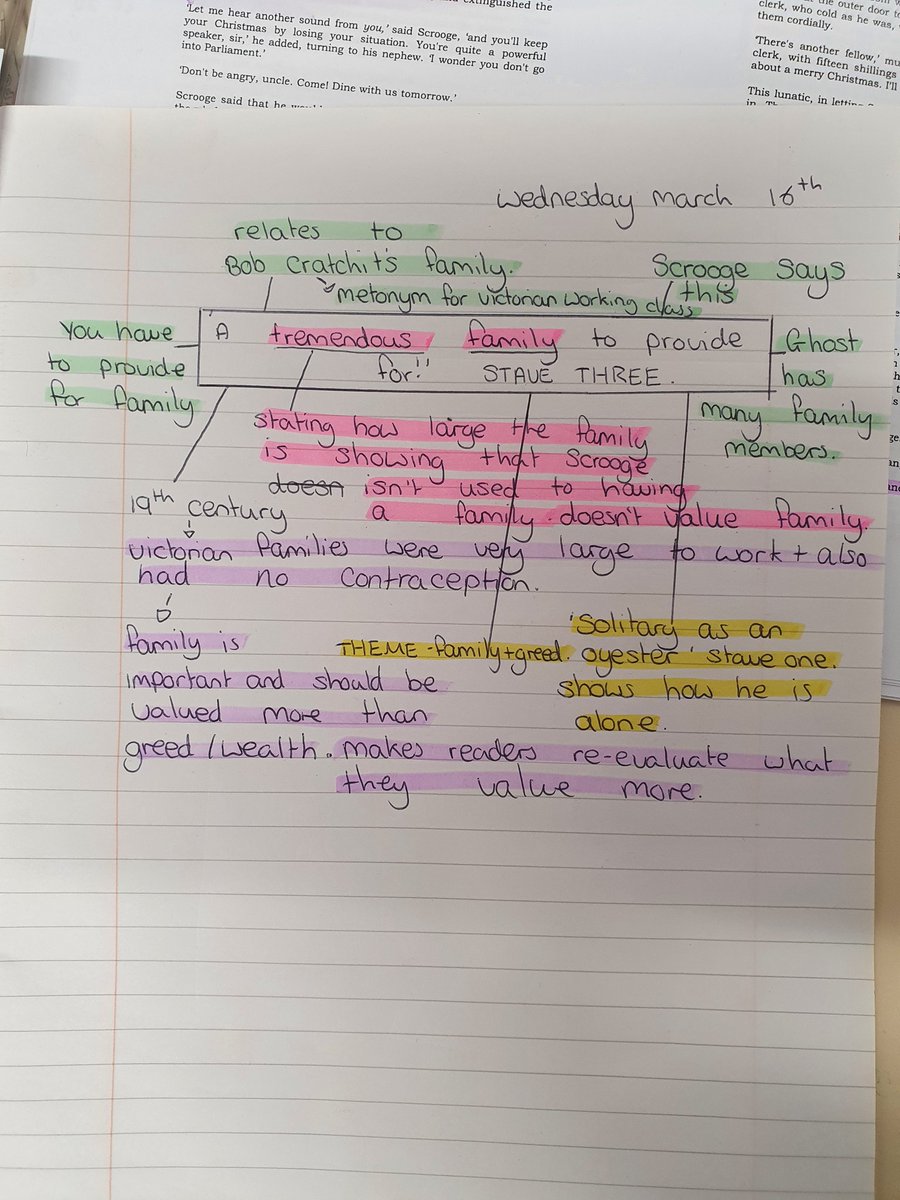 extinguished the
'Let me hear another sound from you,' said Scrooge, 'and you'll keep
your Christmas by losing your situation. You're quite a powerful
speaker, sir,' he added, turning to his nephew. 'I wonder you don't go
into Parliament.'
'Don't be angry, uncle. Come! Dine with us tomorrow.'
Scrooge said that he
the outer door to
clerk, who cold as he was,
them cordially.
'There's another fellow,'
clerk, with fifteen shillings
about a merry Christmas. I'll
This lunatic, in letting
Wednesday march 16th
relates to
Bob Cratchit's family.
metonym for victorian working class
Scrooge says
this
You have
to provide
for family
'A tremendous family to provide
for!'' STAVE THREE.
Ghost
has
many family
members.
stating how large the family
is showing that Scrooge
doesn isn't used to having
a family. doesn't value family.
19th century
victorian families were very large to work + also
had no contraception.
family is
important and should be
valued more than
greed/wealth. makes readers re-evaluate what
they value more.
THEME - family + greed.
'Solitary as an
oyester' stave one.
shows how he is
alone.